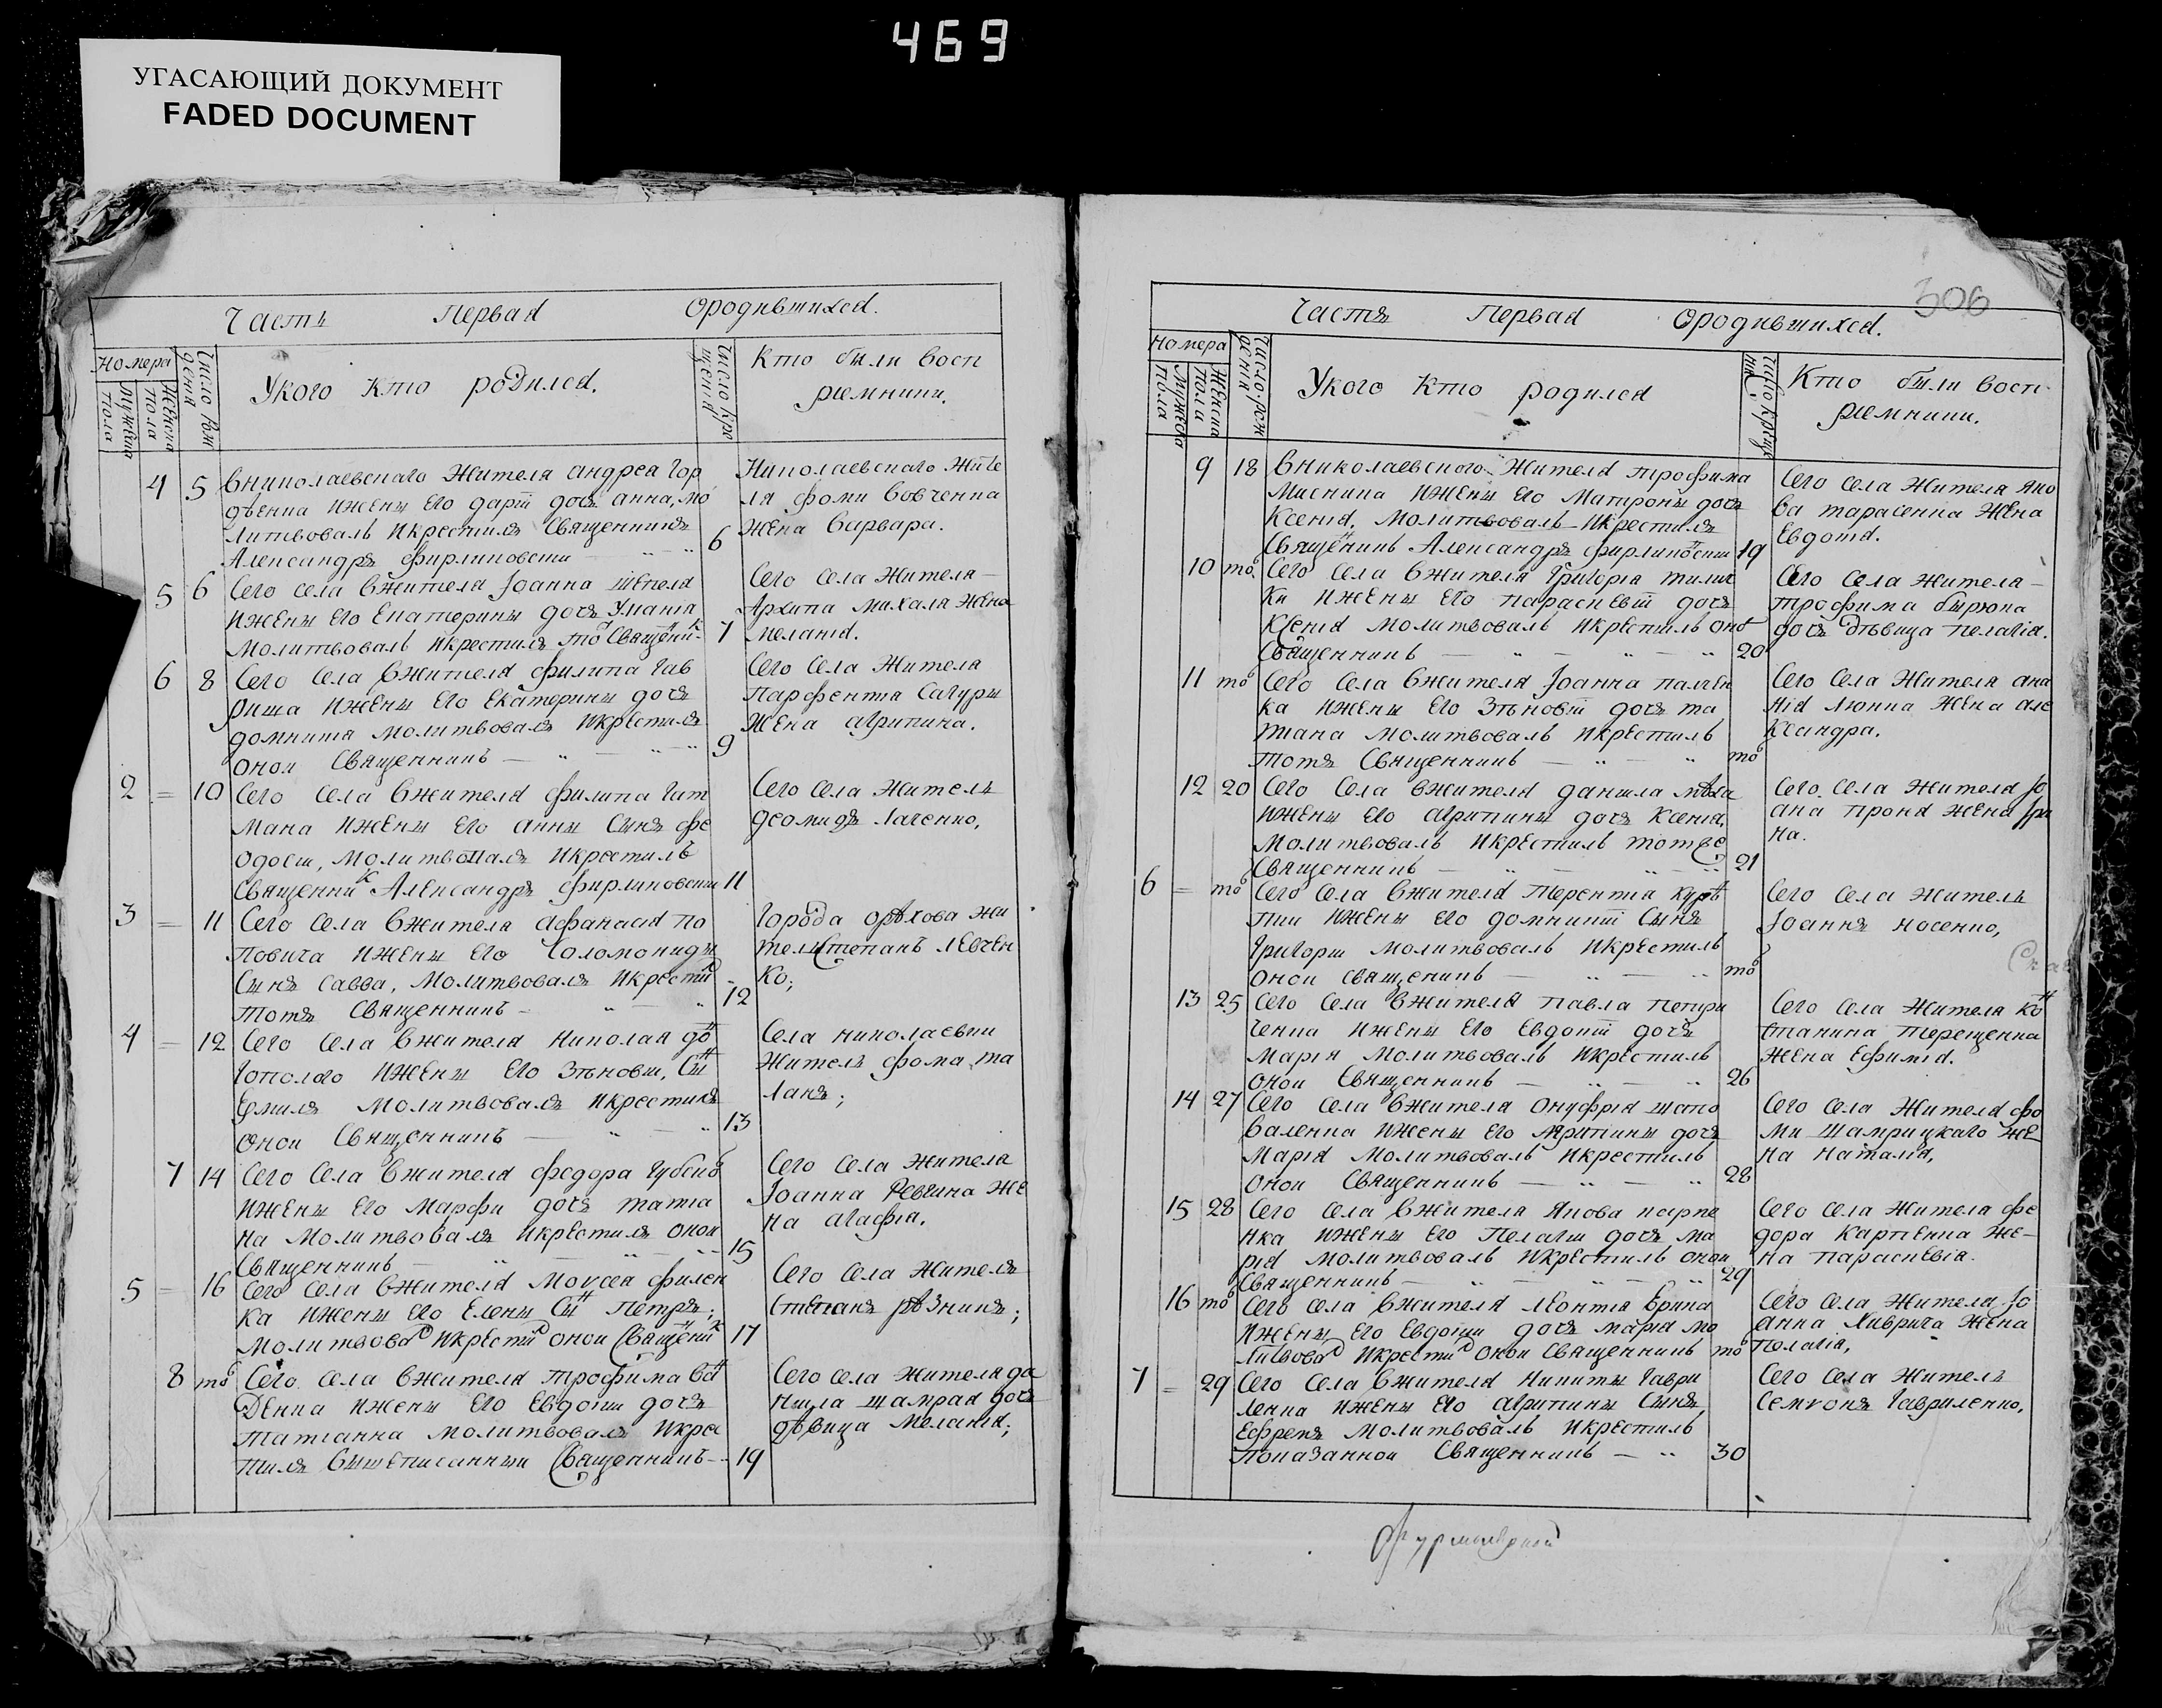 469
УГАСАЮЩИЙ ДОКУМЕНТ
FADED DOCUMENT
Часть Первая Ородившихся.
Номера
Мужеска пола
Женска пола
Число рождения
Укого Кто родился.
Число крещения
Кто были восп
рiемники.
4 5 Вниколаевскаго Жителя Андрея Гор
дѣенка Ижены Его Дарiи дочъ Анна, мо
литвовалъ Икрестилъ Священникъ
Александръ Фирлиновски 6
Николаевскаго Жите
ля Фоми Вовченка
Жена Варвара.
5 6 Сего Села Вжителя Iоанна Шепеля
Ижены Его Екатерины дочъ Улiанiя
Молитвовалъ Икрестилъ той Священик 7
Сего Села Жителя
Архипа Михаля Жена
Меланiя.
6 8 Сего Села Вжителя Филипа Гав
риша Ижены Его Екатерины дочъ
Домникiя Молитвовалъ Икрестилъ
Оной Священникъ 9
Сего Села Жителя
Парфентiя Сагуры
Жена Агрипина.
2 = 10 Сего Села Вжителя Филипа Гит
мана Ижены Его Анны Сынъ Фе
одосiи, Молитвовалъ Икрестилъ
Священник Александръ Фирлиновски 11
Сего Села Житель
Деомидъ Лаченко,
3 = 11 Сего Села Вжителя Афанасiя По
повича Ижены Его Соломониды
Сынъ Савва, Молитвовалъ Икрестил
Тотъ Священникъ 12
Города Орѣхова Жи
тель Степанъ Левчен
ко;
4 = 12 Сего Села Вжителя Николая
Ижены Его Зѣновiи, Сын
Емилъ Молитвовалъ Икрестилъ
Оной Священникъ 13
Села Николаевки
Житель Фома Га
ланъ;
7 14 Сего Села Вжителя Федора
Ижены Его Марфи дочъ Татiа
на Молитвовалъ Икрестилъ Оной
Священникъ 15
Сего Села Жителя
Iоанна Ревчина Же
на Агафiя.
5 = 16 Сего Села Вжителя Моvсея Филен
ка Ижены Его Елены Сын Петръ;
Молитвовал Икрестил Оной Священик 17
Сего Села Житель
Степанъ рѣзникъ;
8 то Сего Села Вжителя Трофима
денка Ижены Его Евдокiи дочъ
Татiанна Молитвовалъ Икре
тилъ Вышеписанный Священникъ 19
Сего Села Жителя Да
нiила Шамрая дочъ
дѣвица Меланiя;
306
Частъ Первая Ородившихся.
Номера
Мужеска пола
Женска пола
Число рождения
Укого Кто родился
Кто были восп
рiемники.
9 18 Вниколаевского Жителя Трофима
Мисника Ижены Его Матроны дочъ
Ксенiя. Молитвовалъ Икрестилъ
Священикъ Александръ Фирлиновски 19
Сего Села Жителя Яко
ва Тарасенка Жена
Евдокiя.
10 то Сего Села Вжителя Григорiя
Ижены Его Параскевiи дочъ
Ксенiя Молитвовалъ Икрестилъ оно
Священникъ 20
Сего Села Жителя
Трофима Бырюка
дочъ дѣвица Пелагiя.
11 то Сего Села Вжителя Iоанна Палчен
ка Ижены Его Зѣновiи дочъ Та
тiана Молитвовалъ Икрестилъ
Тотъ Священникъ то
Сего Села Жителя Ана
нiя Люпка Жена Але
ксандра.
12 20 Сего Села Вжителя Данiила
Ижены Его Агрипины дочъ Ксенiя,
Молитвовалъ Икрестилъ тотже
Священникъ 21
Сего Села Жителя Iо
ана Проня Жена Iри
на.
6 = то Сего Села Вжителя Терентiя
Ижены Его Домникiи Сынъ
Григорiи Молитвовалъ Икрестилъ
Оной Священикъ то
Сего Села Житель
Iоаннъ Носенко,
13 25 Сего Села Вжителя Павла Петри
ченка Ижены Его Евдокiи дочъ
Марiя Молитвовалъ Икрестилъ
Оной Священникъ 26
Сего Села Жителя Кон
стантина Терещенка
Жена Ефимiя.
14 27 Сего Села Вжителя Онуфрiя Шапо
валенка Ижены Его Агрипины дочъ
Марiя Молитвовалъ Икрестилъ
Оной Священникъ 28
Сего Села Жителя Фо
ми Шамрицкаго Же
на Наталiя,
15 28 Сего Села Вжителя Якова Карпе
нка Ижены Его Пелагiи дочъ Ма
рiя Молитвовалъ Икрестилъ Оной
Священникъ 29
Сего Села Жителя Фе
дора Карпенка Же-
на Параскевiя.
16 то Сего Села Вжителя Леонтiя Ерина
Ижены Его Евдокiи дочъ Марiя Мо
литвовал Икрестил Оной Священникъ то
Сего Села Жителя Iо
анна Хиврича Жена
Пелагiя,
7 = 29 Сего Села Вжителя Никиты Гаври
ленка Ижены Его Агрипины Сынъ,
Ефремъ Молитвовалъ Икрестилъ
Показанной Священникъ 30
Сего Села Житель
Семvонъ Гавриленко.